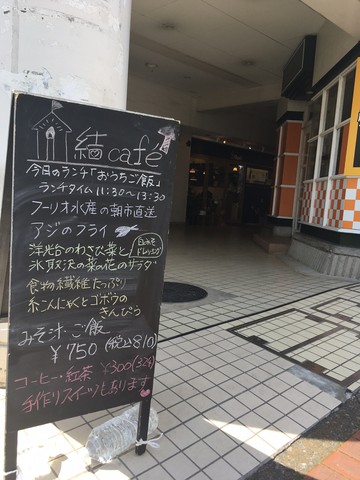 結 café
今日のランチ「おうちご飯」
ランチタイム 11:30～13:30
フーリオ水産の朝市直送
アジのフライ
洋光台のわさび菜と
氷取沢の菜の花のサラダ
白みそ
ドレッシング
食物繊維たっぷり
糸こんにゃくとゴボウの
きんぴら
みそ汁・ご飯
¥750 (税込810)
コーヒー・紅茶 ¥300(324)
手作りスイーツもあります